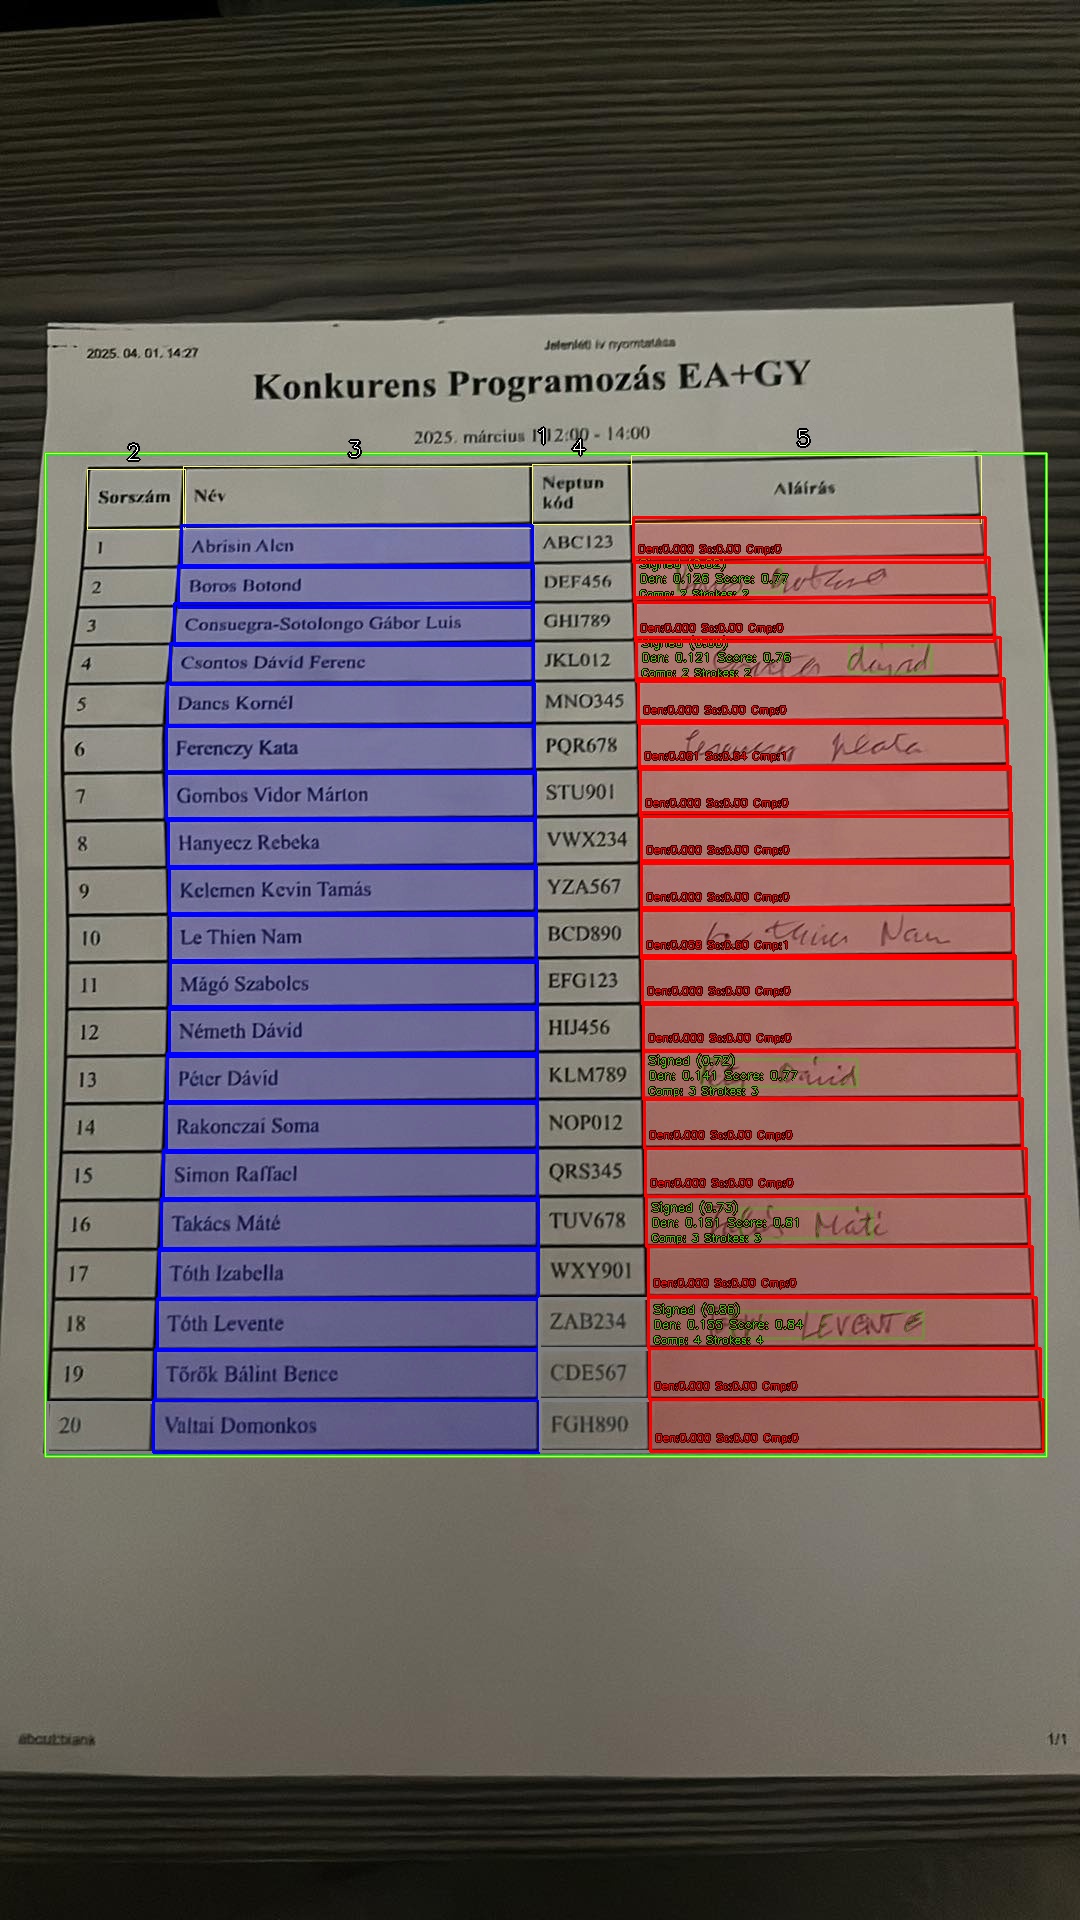 2025. 04. 01. 14:27 Jelenléti ív nyomtatása
Konkurens Programozás EA+GY
2025. március 1 12:00 - 14:00
1
2 3 4 5
Sorszám Név Neptun kód Aláírás
1 Abrisin Alen ABC123
Den:0.000 Sc:0.00 Cmp:0
2 Boros Botond DEF456
Den: 0.126 Score: 0.77
Comp: 2 Strokes: 2
3 Consuegra-Sotolongo Gábor Luis GHI789
Den:0.000 Sc:0.00 Cmp:0
4 Csontos Dávid Ferenc JKL012 dávid
Den: 0.121 Score: 0.76
Comp: 2 Strokes: 2
5 Dancs Kornél MNO345
Den:0.000 Sc:0.00 Cmp:0
6 Ferenczy Kata PQR678 Kata
7 Gombos Vidor Márton STU901
Den:0.000 Sc:0.00 Cmp:0
8 Hanyecz Rebeka VWX234
Den:0.000 Sc:0.00 Cmp:0
9 Kelemen Kevin Tamás YZA567
Den:0.000 Sc:0.00 Cmp:0
10 Le Thien Nam BCD890 Le Thien Nam
11 Mágó Szabolcs EFG123
Den:0.000 Sc:0.00 Cmp:0
12 Németh Dávid HIJ456
Den:0.000 Sc:0.00 Cmp:0
13 Péter Dávid KLM789 Dávid
Signed (0.72)
Den: 0.141 Score: 0.77
Comp: 3 Strokes: 3
14 Rakonczai Soma NOP012
Den:0.000 Sc:0.00 Cmp:0
15 Simon Raffael QRS345
Den:0.000 Sc:0.00 Cmp:0
16 Takács Máté TUV678 Máté
Signed (0.73)
Den: 0.151 Score: 0.81
Comp: 3 Strokes: 3
17 Tóth Izabella WXY901
Den:0.000 Sc:0.00 Cmp:0
18 Tóth Levente ZAB234 LEVENTE
Signed (0.86)
Den: 0.155 Score: 0.84
Comp: 4 Strokes: 4
19 Török Bálint Bence CDE567
Den:0.000 Sc:0.00 Cmp:0
20 Valtai Domonkos FGH890
Den:0.000 Sc:0.00 Cmp:0
about:blank 1/1